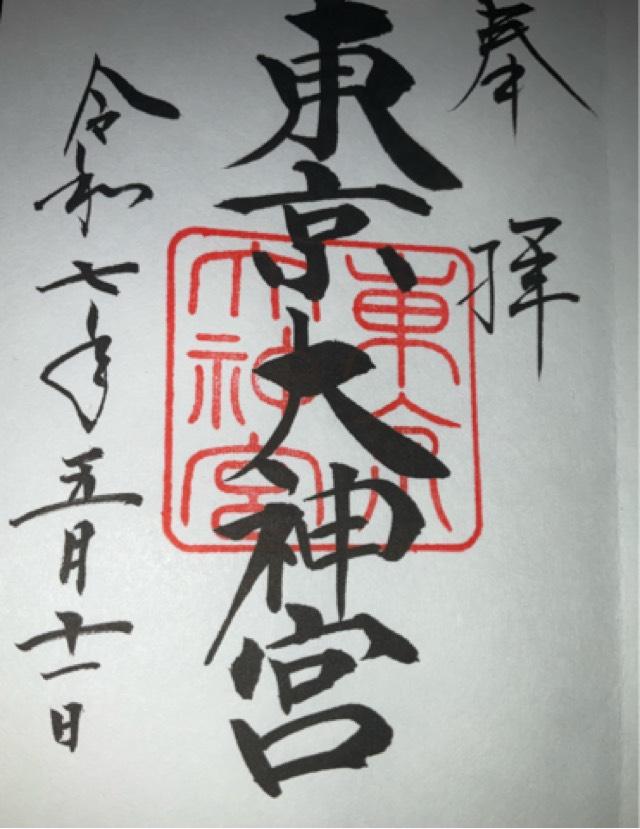 奉拝
東京大神宮
東京
大神宮
令和七年五月十一日